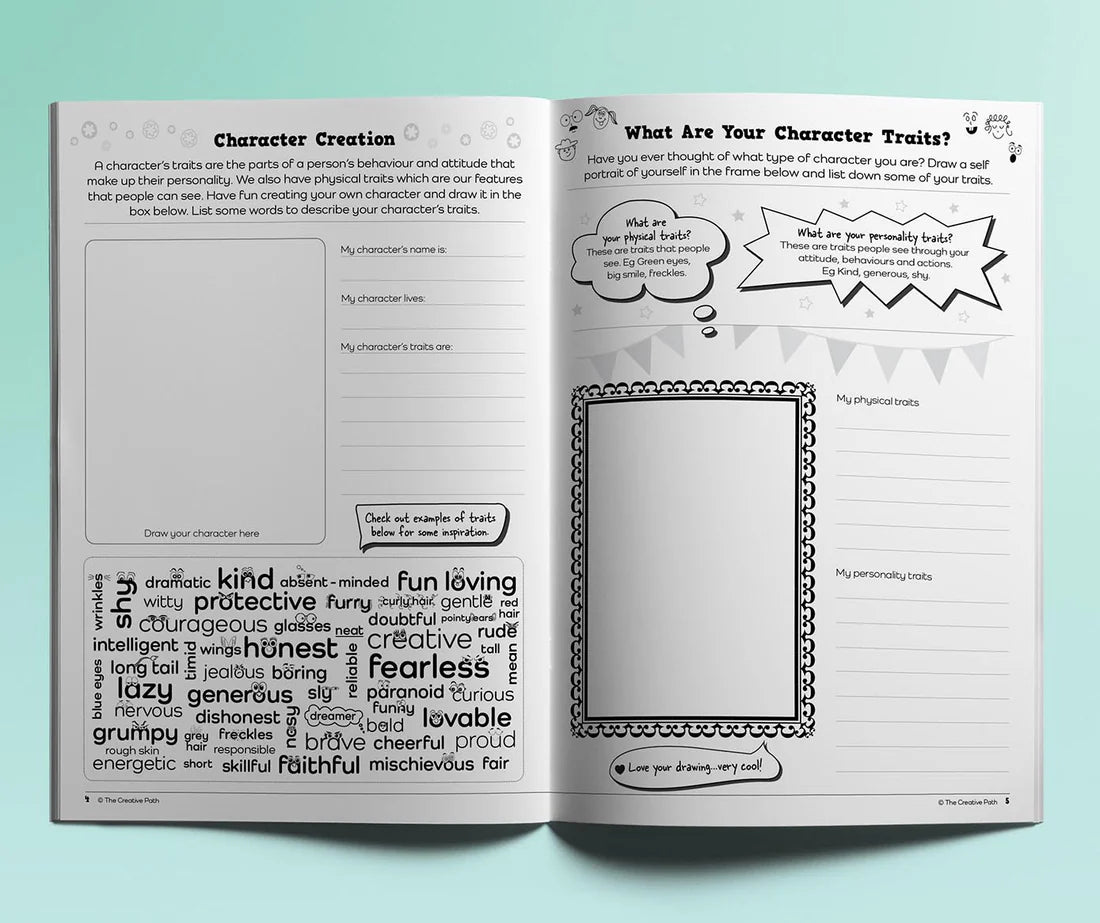 Character Creation
A character's traits are the parts of a person's behaviour and attitude that
make up their personality. We also have physical traits which are our features
that people can see. Have fun creating your own character and draw it in the
box below. List some words to describe your character's traits.
My character's name is:
My character lives:
My character's traits are:
Draw your character here
Check out examples of traits
below for some inspiration.
wrinkles
shy
dramatic
kind
absent-minded
fun loving
witty
protective
furry
curly hair
gentle
red
hair
courageous
glasses
neat
doubtful
pointy ears
creative
rude
intelligent
timid
wings
honest
reliable
tall
mean
blue eyes
long tail
jealous
boring
fearless
lazy
generous
sly
paranoid
curious
nervous
dishonest
noisy
dreamer
funny
bald
lovable
grumpy
grey
hair
freckles
brave
cheerful
proud
rough skin
responsible
energetic
short
skillful
faithful
mischievous
fair
4 © The Creative Path
What Are Your Character Traits?
Have you ever thought of what type of character you are? Draw a self
portrait of yourself in the frame below and list down some of your traits.
What are
your physical traits?
These are traits that people
see. Eg Green eyes,
big smile, freckles.
What are your personality traits?
These are traits people see through your
attitude, behaviours and actions.
Eg Kind, generous, shy.
My physical traits
My personality traits
Love your drawing...very cool!
© The Creative Path 5